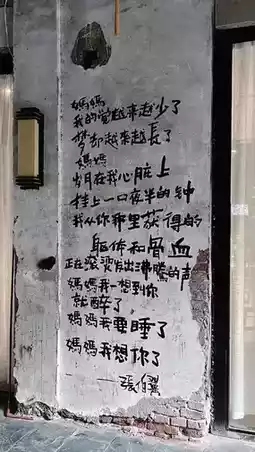 媽媽
我的覚越来越少了
梦却越来越長了
媽媽
岁月在我心脏上
挂上一口夜半的钟
我从你那里获得的
躯体和骨血
正在滚烫发出沸騰的声
媽媽我一想到你
就醉了
媽媽我要睡了
媽媽我想你了
——張佰翼